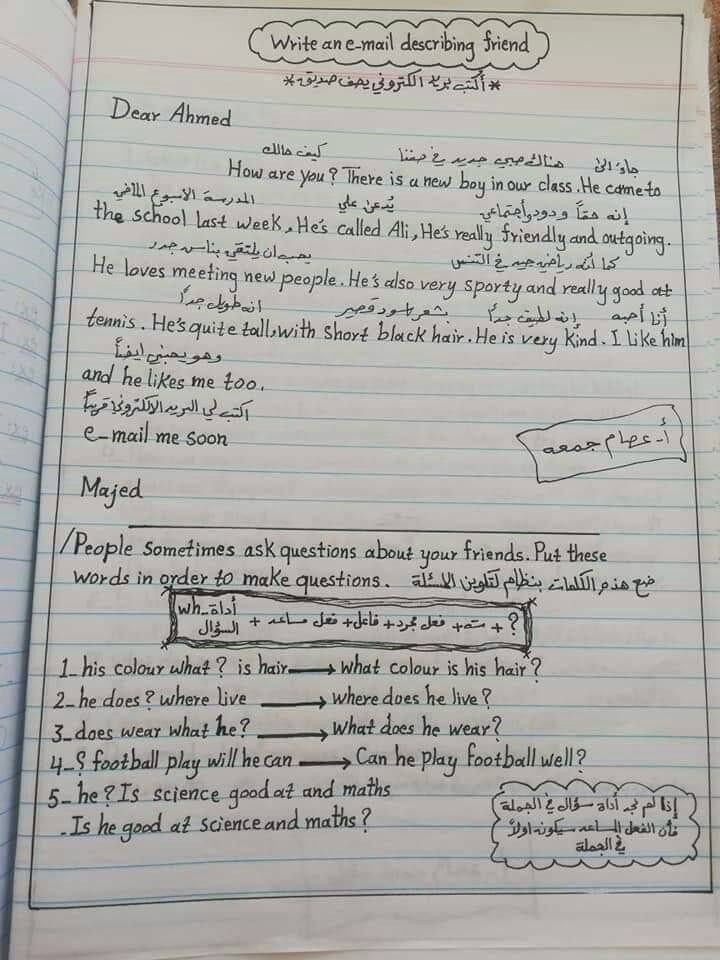 Write an e-mail describing friend
* أكتب بريد الكتروني يصف صديق *
Dear Ahmed
كيف حالك هناك صبي جديد في صفنا جاء الى
How are you? There is a new boy in our class. He came to
المدرسة الاسبوع الماضي يُدعى علي إنه حقاً ودود وأجتماعي
the school last week, He's called Ali, He's really friendly and outgoing.
يحب ان يلتقي بناس جدد كما أنه رياضي جيد في التنس
He loves meeting new people. He's also very sporty and really good at
انه طويل جداً بشعر اسود قصير إنه لطيف جداً أنا أحبه
tennis. He's quite tall, with short black hair. He is very kind. I like him
وهو يحبني ايضاً
and he likes me too.
اكتب لي البريد الالكتروني قريباً
e-mail me soon
أ- عصام جمعه
Majed
/People sometimes ask questions about your friends. Put these
words in order to make questions. ضع هذه الكلمات بنظام لتكوين الاسئلة
wh- أداة السؤال + فعل مساعد + فاعل + فعل مجرد + تة + ?
1- his colour what? is hair → what colour is his hair?
2- he does? where live → where does he live?
3- does wear what he? → What does he wear?
4- ? football play will he can → Can he play football well?
5- he? Is science good at and maths
- Is he good at science and maths?
إذا لم نجد أداة سؤال في الجملة
فأن الفعل المساعد سيكون اولاً
في الجملة